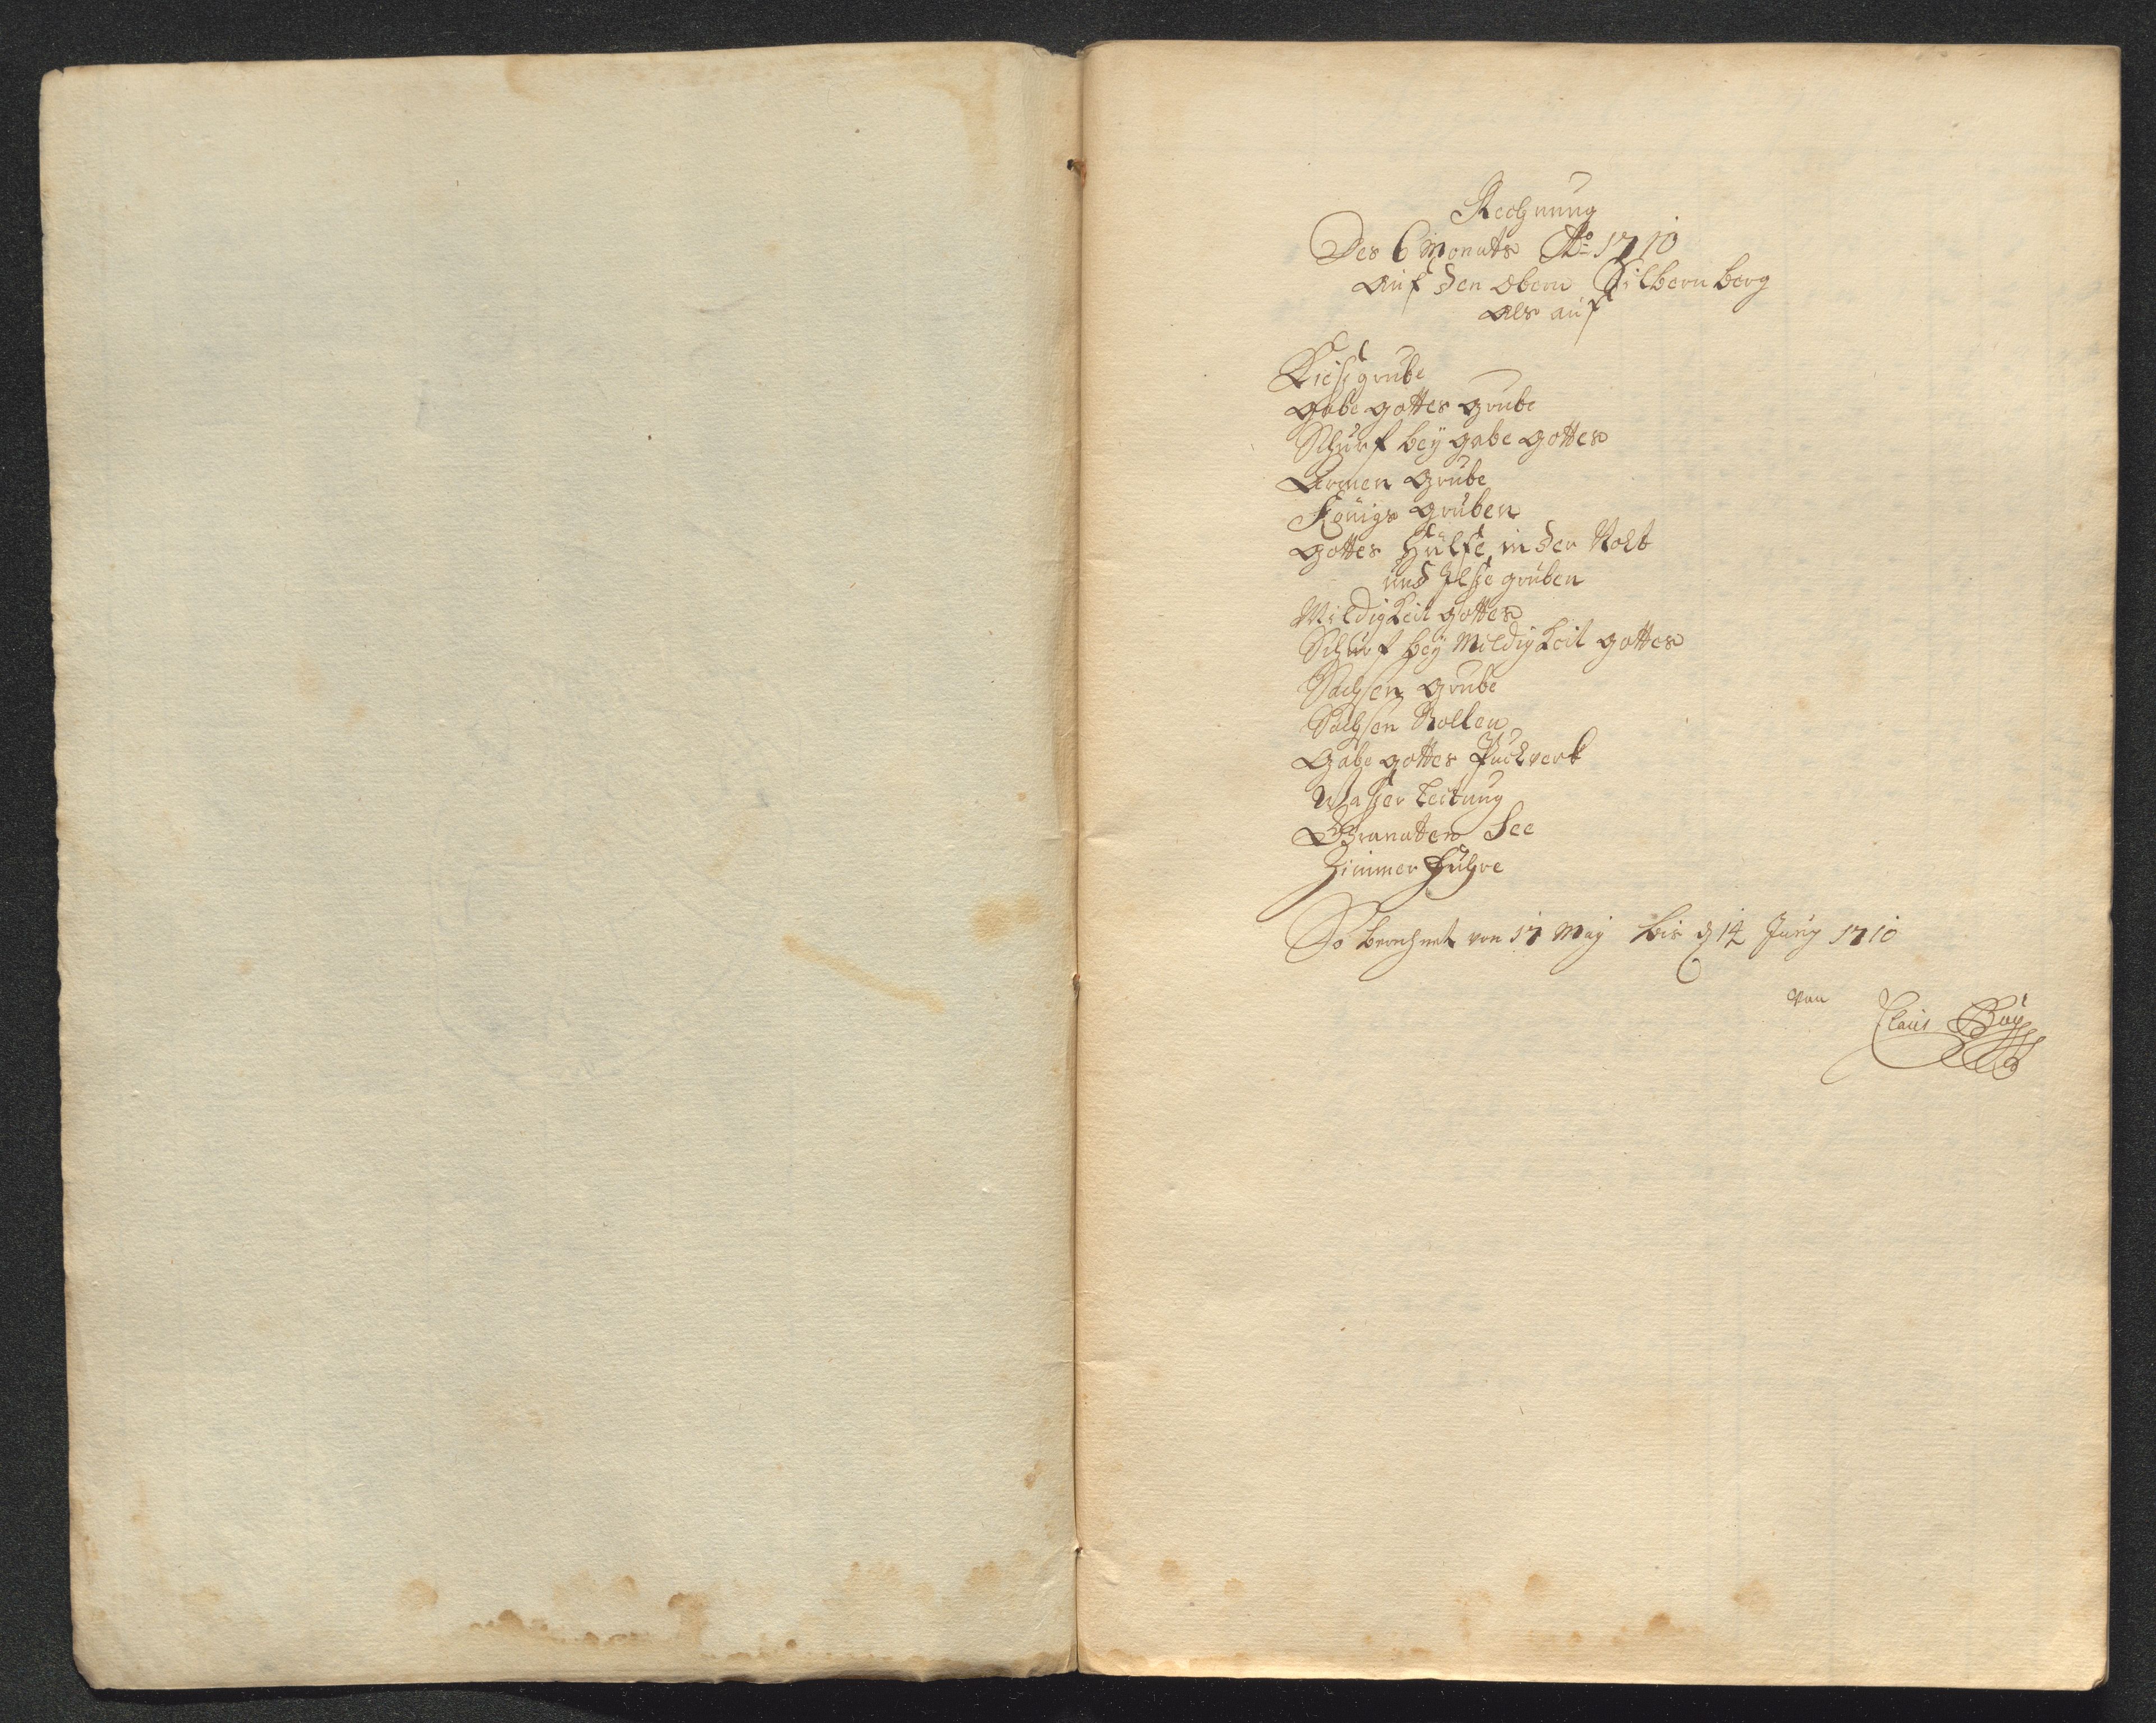 Rechnung
Des 6 Monats Ao 1710
auf den obern Silbern berg
als auf
Kießgrube
gabe gottes grube
Schurf beÿ gabe gottes
Armen grube
Königs gruben
gottes Hülfe in der Noht
und Ilse gruben
Mildigkeit gottes
Schurf beÿ Mildigkeit gottes
Sachsen grube
Sachsen Stollen
Gabe gottes Puchwerk
Wasser Leitung
Granaten See
Zimmer Fuhre
So berechnet von 17 Maÿ bis d 14 Junÿ 1710
von Claus